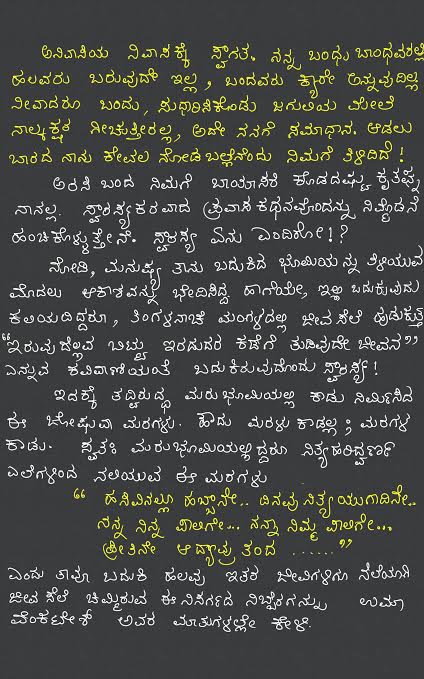 ಅನಿವಾಸಿಯ ನಿವಾಸಕ್ಕೆ ಸ್ವಾಗತ. ನನ್ನ ಬಂಧು ಬಾಂಧವರಲ್ಲಿ
ಹಲವರು ಬರುವುದೇ ಇಲ್ಲ, ಬಂದವರು ಕ್ಯಾರೇ ಅನ್ನುವುದಿಲ್ಲ
ನೀವಾದರೂ ಬಂದು, ಸುಧಾರಿಸಿಕೊಂಡು ಜಗುಲಿಯ ಮೇಲೆ
ನಾಲ್ಕಕ್ಷರ ಗೀಚುತ್ತೀರಲ್ಲ, ಅದೇ ನನಗೆ ಸಮಾಧಾನ. ಆಡಲು
ಬಾರದ ನಾನು ಕೇವಲ ನೋಡಬಲ್ಲೆನೆಂದು ನಿಮಗೆ ತಿಳಿದಿದೆ!
ಅರಸಿ ಬಂದ ನಿಮಗೆ ಬಾಯಾಸರಿಕೆ ಕೊಡದಷ್ಟು ಕೃತಘ್ನ
ನಾನಲ್ಲ. ಸ್ವಾರಸ್ಯಕರವಾದ ಪ್ರವಾಸ ಕಥನವೊಂದನ್ನು ನಿಮ್ಮೊಡನೆ
ಹಂಚಿಕೊಳ್ಳುತ್ತೇನೆ. ಸ್ವಾರಸ್ಯ ಏನು ಎಂದಿರೋ!?
ನೋಡಿ, ಮನುಷ್ಯ ತಾನು ಬದುಕಿದ ಭೂಮಿಯನ್ನು ತಿಳಿಯುವ
ಮೊದಲು ಆಕಾಶವನ್ನು ಭೇದಿಸಿದ್ದ ಹಾಗೆಯೇ, ಇಲ್ಲಿ ಬದುಕುವುದು
ಕಲಿಯದಿದ್ದರೂ, ತಿಂಗಳನಾಚೆ ಮಂಗಳದಲ್ಲಿ ಜೀವಸೆಲೆ ಹುಡುಕುತ್ತ
"ಇರುವುದೆಲ್ಲವ ಬಿಟ್ಟು ಇರದುದರ ಕಡೆಗೆ ತುಡಿವುದೇ ಜೀವನ"
ಎನ್ನುವ ಕವಿವಾಣಿಯಂತೆ ಬದುಕಿರುವುದೊಂದು ಸ್ವಾರಸ್ಯ!
ಇದಕ್ಕೆ ತದ್ವಿರುದ್ಧ ಮರುಭೂಮಿಯಲ್ಲಿ ಕಾಡು ನಿರ್ಮಿಸಿದ
ಈ ಜೋಷುವಾ ಮರಗಳು. ಹೌದು ಮರಳು ಕಾಡಲ್ಲ; ಮರಗಳ
ಕಾಡು. ಸ್ವತಃ ಮರುಭೂಮಿಯಲ್ಲಿದ್ದರೂ ನಿತ್ಯಹರಿದ್ವರ್ಣ
ಎಲೆಗಳಿಂದ ನಲಿಯುವ ಈ ಮರಗಳು
" ಹಸಿವಿನಲ್ಲೂ ಹಬ್ಬಾನೇ.. ದಿನವು ನಿತ್ಯ ಯುಗಾದಿನೇ..
ನನ್ನ ನಿನ್ನ ಪಾಲಿಗೇ... ನನ್ನಾ ನಿಮ್ಮ ಪಾಲಿಗೇ...
ಪ್ರೀತಿನೇ ಆ ದ್ಯಾವ್ರು ತಂದ ......"
ಎಂದು ತಾವೂ ಬದುಕಿ ಹಲವು ಇತರ ಜೀವಿಗಳಿಗೂ ನೆಲೆಯಾಗಿ
ಜೀವ ಸೆಲೆ ಚಿಮ್ಮಿರುವ ಈ ನಿಸರ್ಗದ ನಿಬ್ಬೆರಗನ್ನು ಉಮಾ
ವೆಂಕಟೇಶ್ ಅವರ ಮಾತುಗಳಲ್ಲೇ ಕೇಳಿ.